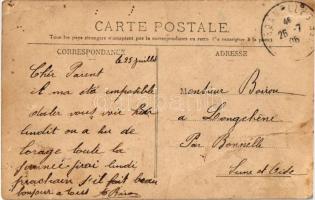 CARTE POSTALE
Tous les pays étrangers n'acceptent pas la correspondance au recto
CORRESPONDANCE
ADRESSE
le 25 juillet
Cher Parent
il m'a été impossible
daler vous voir
lundit on a eu de
lorage toute la
journée jirai lundi
prochain s'il fait beau
bonjour a tous
Monsieur Boirou
a Longchêne
Par Bonnelle
Seine et Oise
26 -7
06